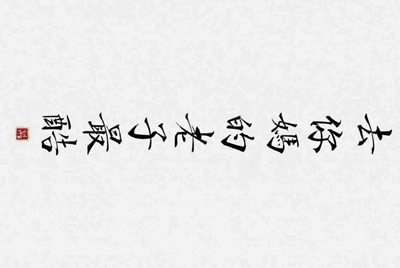 去你媽的老子最酷